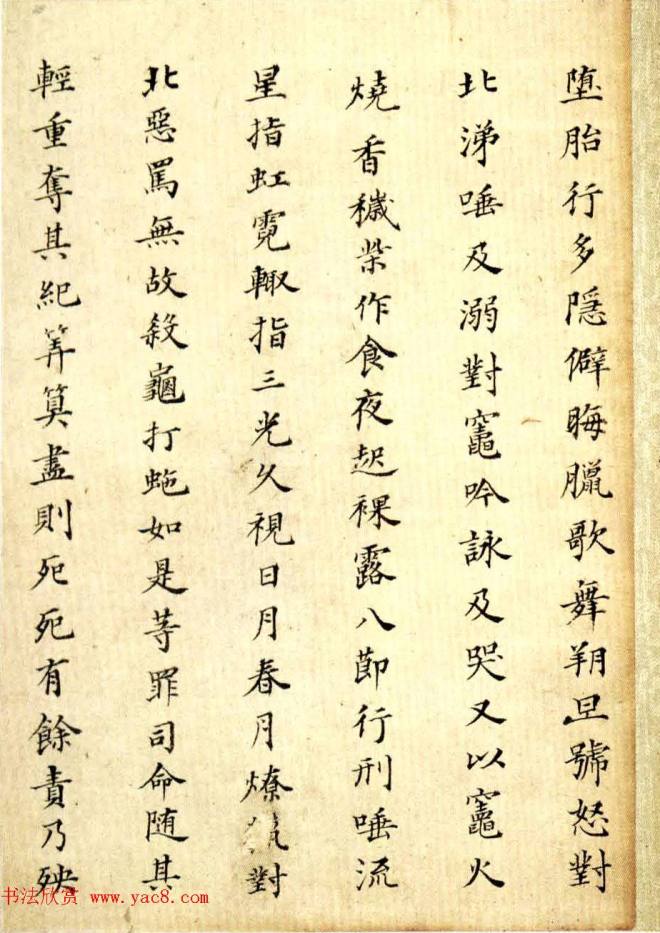 墮胎行多隱僻晦臘歌舞朔旦號怒對
北涕唾及溺對竈吟詠及哭又以竈火
燒香穢柴作食夜起裸露八節行刑唾流
星指虹霓輙指三光久視日月春月燎對
北惡罵無故殺龜打虵如是等罪司命随其
輕重奪其紀筭筭盡則死死有餘責乃殃
书法欣赏 www.yac8.com